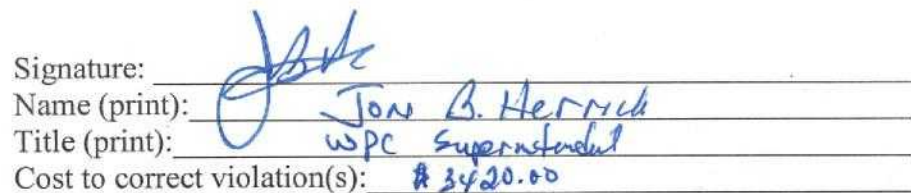 Signature:
Name (print): Jon B. Herrick
Title (print): WPC Superintendent
Cost to correct violation(s): $3420.00